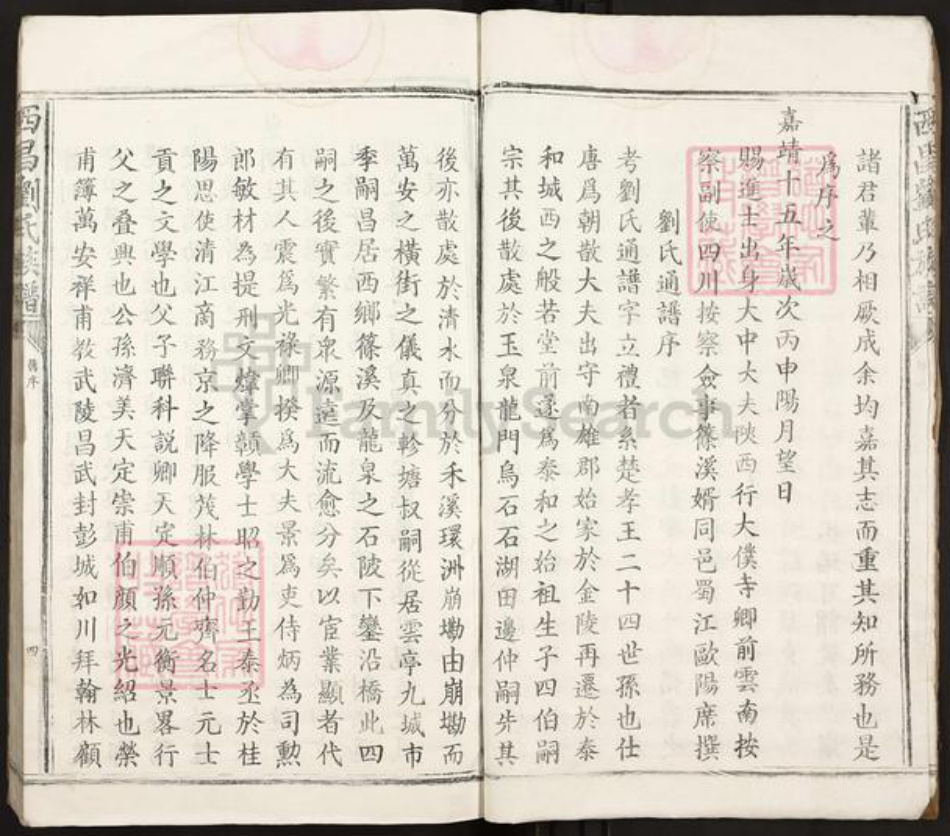 諸君輩乃相厥成余均嘉其志而重其知所務也是
為序之
嘉靖十五年歲次丙申陽月望日
賜進士出身大中大夫陝西行大僕寺卿前雲南按
察副使四川按察僉事篠溪婿同邑蜀江歐陽席撰
劉氏通譜序
考劉氏通譜字立禮者系楚孝王二十四世孫也仕
唐爲朝散大夫出守南雄郡始家於金陵再遷於泰
和城西之般若堂前遂爲泰和之始祖生子四伯嗣
宗其後散處於玉泉龍門烏石石湖田邊仲嗣歩其
後亦散處於清水而分於禾溪環洲崩塲由崩塲而
萬安之橫街之儀真之軫塘叔嗣從居雲亭九城市
季嗣昌居西鄉篠溪及龍泉之石陂下鑾沿橋此四
嗣之後實繁有眾源遠而流愈分矣以宦業顯者代
有其人震爲光祿卿揆爲大夫景爲吏侍炳為司勲
郎敏材為提刑文煒掌顥學士昭之勤王泰丞於桂
陽思使清江啇務京之降服茂林伯仲齊名士元士
貢之文學也父子聯科説卿天定順孫元衡景畧行
父之叠興也公孫濟美天定崇甫伯顔之光紹也榮
甫簿萬安祥甫教武陵昌武封彭城如川拜翰林顧
西昌劉氏族譜
舊序
四